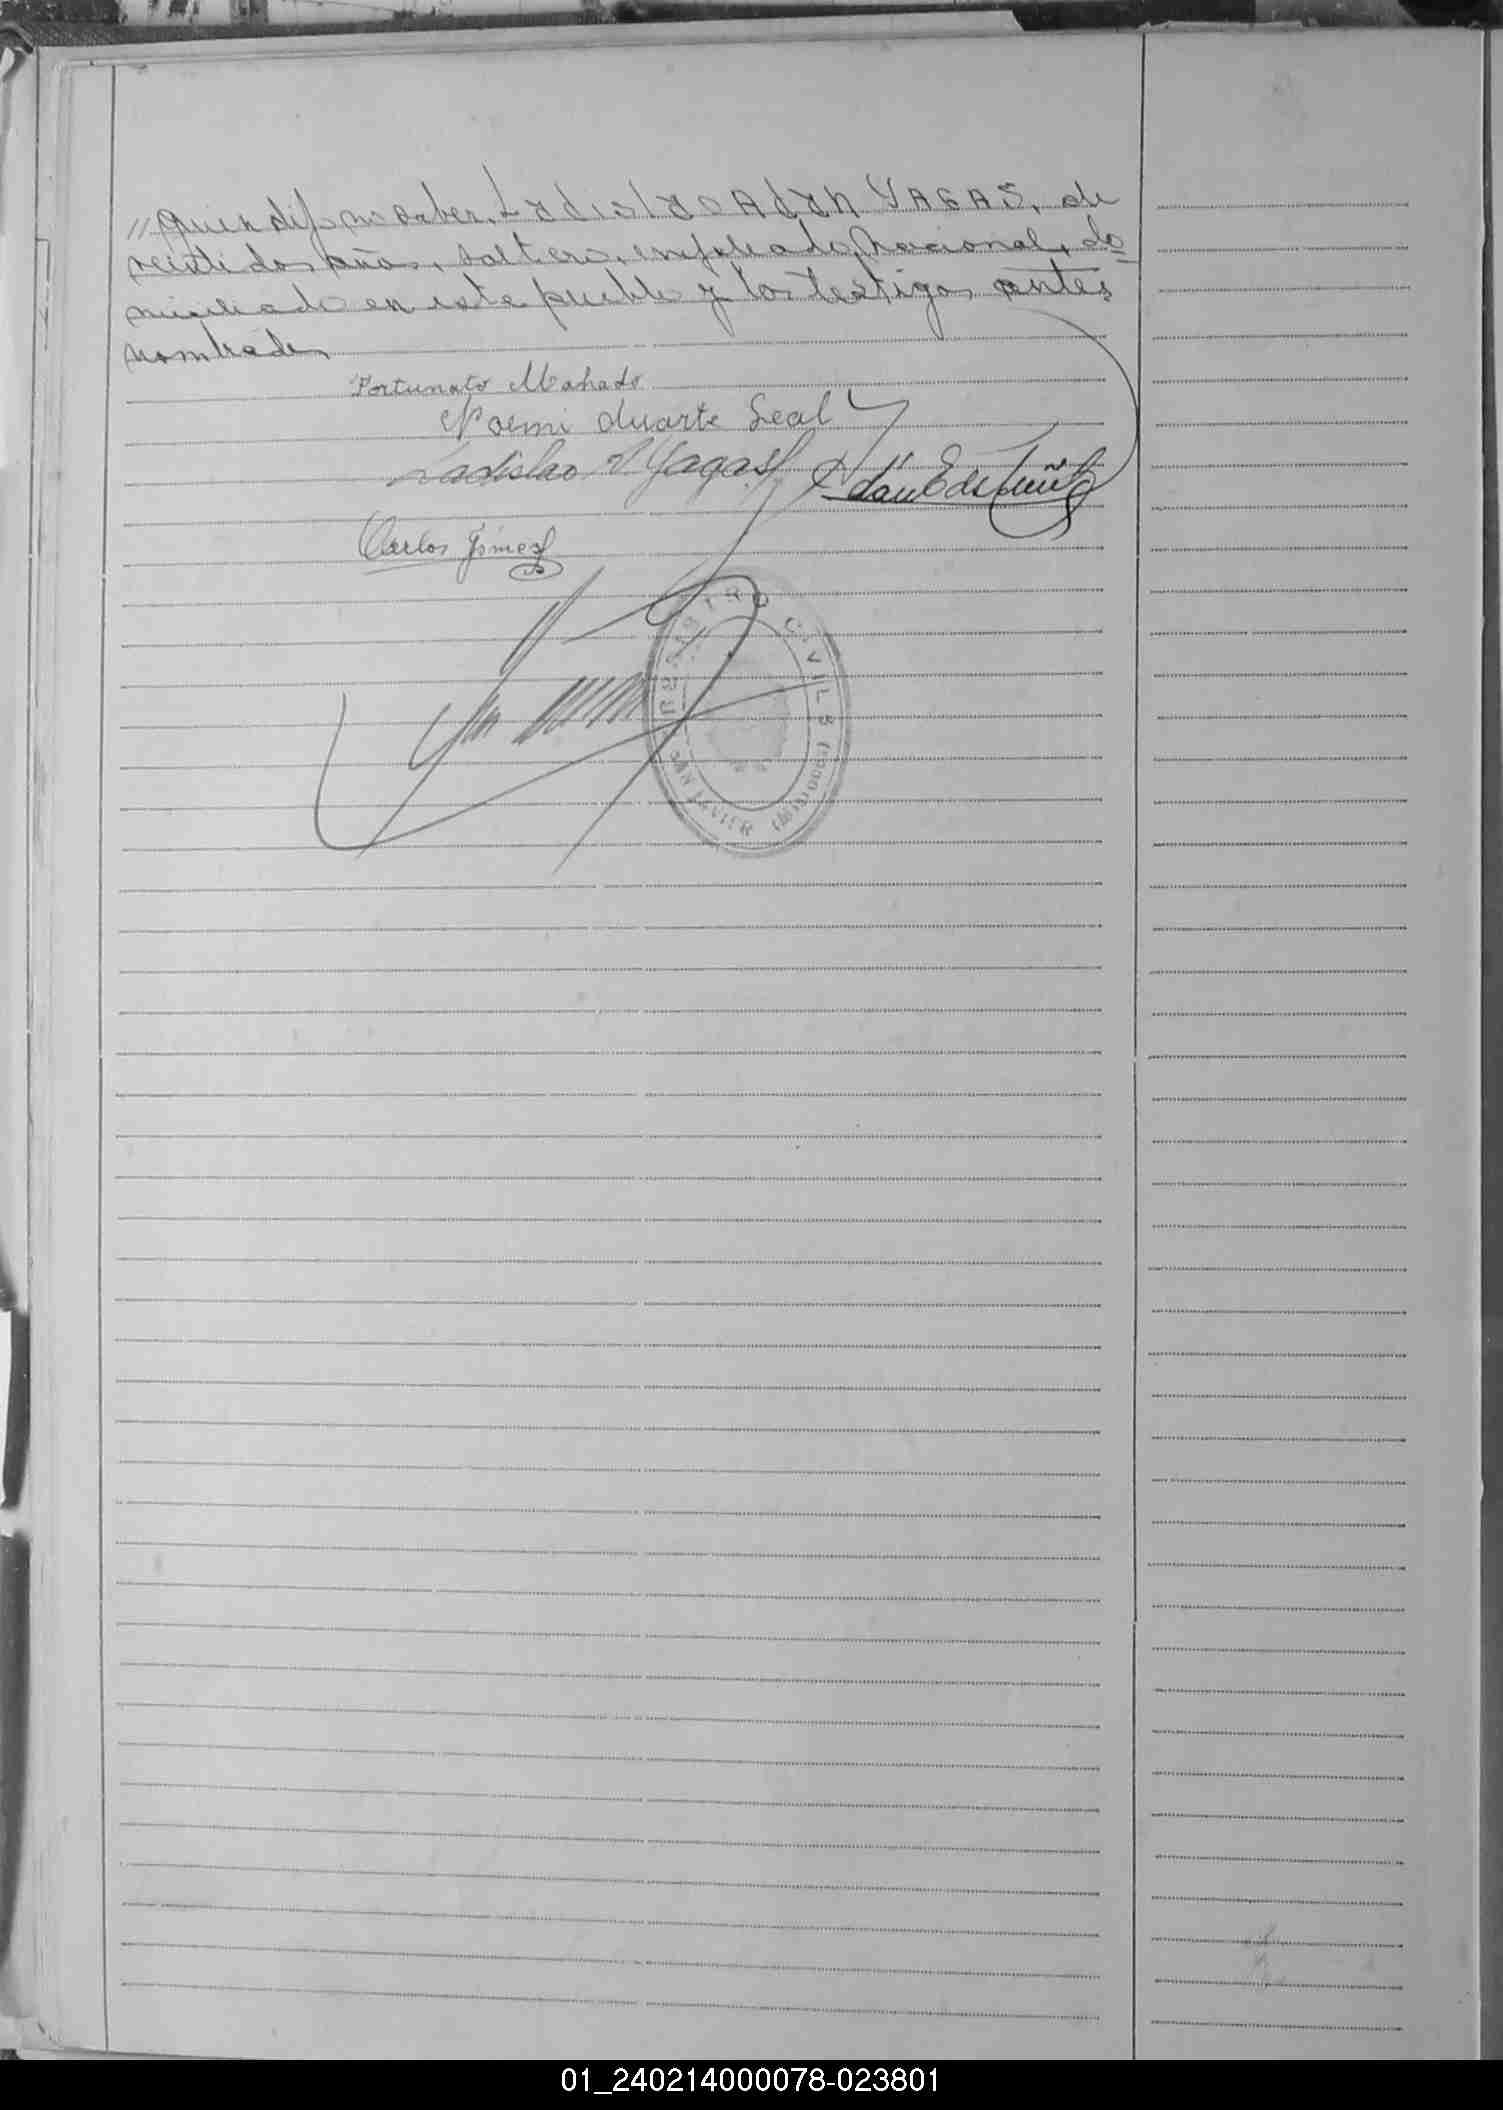 // quien dijo no saber, Ladislao Adan YAGAS, de
veinti dos años, soltero, empleado Nacional, do-
miciliado en este pueblo y los testigos antes
nombrados
Fortunato Mahado
Noemi Duarte Leal
Ladislao A Yagas
Carlos Gimez
REGISTRO CIVIL
SAN JAVIER (Misiones)
01_240214000078-023801